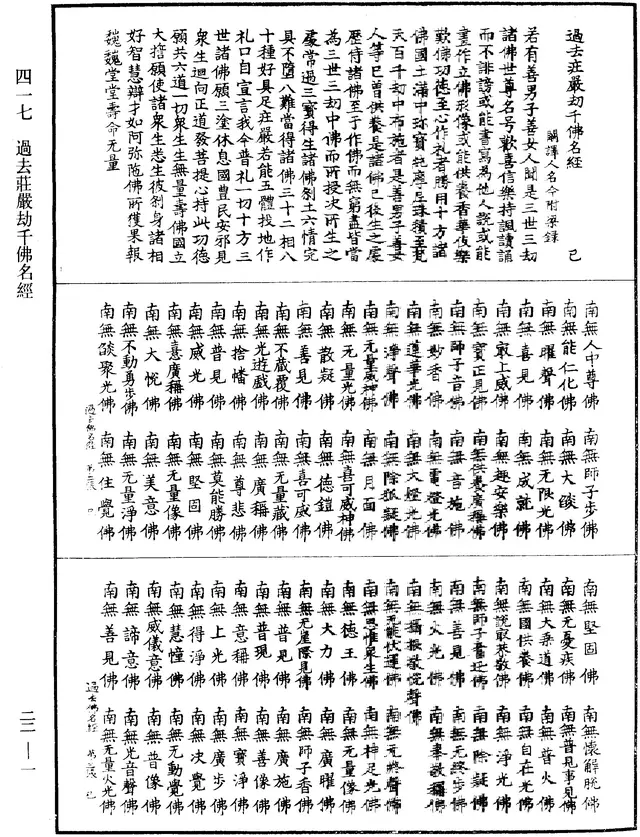 過去莊嚴劫千佛名經
闕譯人名今附梁錄
已
若有善男子善女人聞是三世三劫
諸佛世尊名号歡喜信樂持諷讀誦
而不誹謗或能書寫為他人說或能
畫作立佛形像或能供養香華伎樂
歎佛功德至心作礼者勝用十方諸
佛國土滿中珎寶純摩尼珠積至梵
天百千劫中布施者是善男子善女
人等已曾供養是諸佛已後生之處
歷侍諸佛至于作佛而無窮盡皆當
為三世三劫中佛而所授决所生之
處常過三寶得生諸佛剎土六情完
具不墮八難當得諸佛三十二相八
十種好具足莊嚴若能五體投地作
礼口自宣言我今普礼一切十方三
世諸佛願三塗休息國豊民安邪見
衆生迴向正道發菩提心持此功德
願共六道一切衆生生無量壽佛國立
大誓願使諸衆生悉生彼剎身諸相
好智慧辯才如阿弥陁佛所獲果報
巍巍堂堂壽命无量
南無人中尊佛 南無師子步佛
南無能仁化佛 南無大𦦨佛
南無曜聲佛 南無无限光佛
南無喜見佛 南無成就佛
南無㝡上威佛 南無趣安樂佛
南無寶正見佛 南無供養廣稱佛
南無師子音佛 南無音施佛
南無妙香佛 南無電燈光佛
南無蓮華光佛 南無大燈光佛
南無淨聲佛 南無除狐疑佛
南無无量威神佛 南無月面佛
南無无量光佛 南無喜可威神佛
南無散疑佛 南無德鎧佛
南無善見佛 南無喜可威佛
南無不藏覆佛 南無无量藏佛
南無光遊戲佛 南無廣稱佛
南無捨幡佛 南無尊悲佛
南無普見佛 南無莫能勝佛
南無威光佛 南無堅固佛
南無意廣稱佛 南無无量像佛
南無大悅佛 南無美意佛
南無不動勇步佛 南無无量淨佛
南無𦦨聚光佛 南無住覺佛
南無堅固佛 南無懷解脫佛
南無无憂疾佛 南無普見事見佛
南無大乘道佛 南無普火佛
南無國供養佛 南無自在光佛
南無說㝡恭敬佛 南無淨光佛
南無師子奮迅佛 南無除疑佛
南無善見佛 南無无終步佛
南無火光佛 南無奉敬稱佛
南無攝根敬悅聲佛
南無无能伏運佛 南無无終聲佛
南無思惟衆生佛 南無神足光佛
南無德王佛 南無无量像佛
南無大力佛 南無廣曜佛
南無无崖際見佛 南無師子香佛
南無普見佛 南無廣施佛
南無普現佛 南無善像佛
南無意稱佛 南無寶淨佛
南無上光佛 南無廣步佛
南無得淨佛 南無决覺佛
南無慧幢佛 南無无動覺佛
南無威儀意佛 南無普像佛
南無諦意佛 南無光音聲佛
南無善見佛 南無无量火光佛
四一七 過去莊嚴劫千佛名經
二二—一